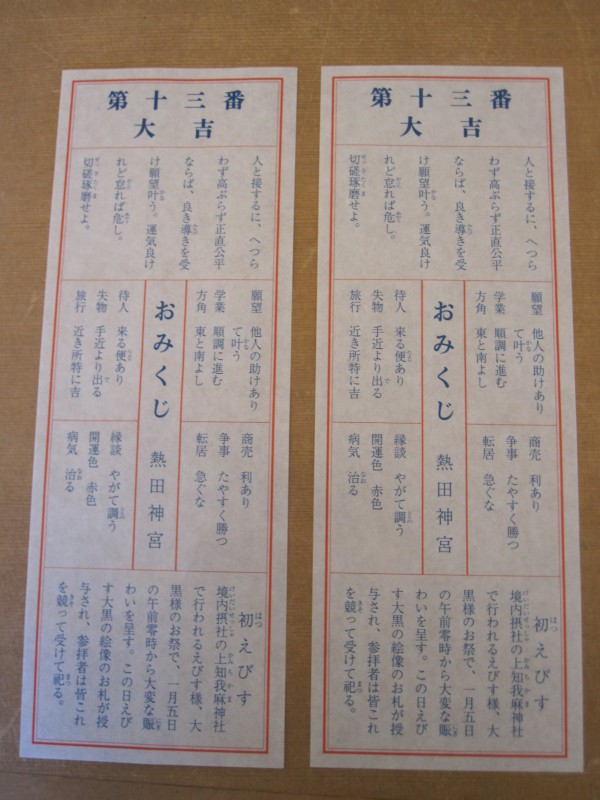 第十三番
大吉
人と接するに、へつら
わず高ぶらず正直公平
ならば、良き導きを受
け願望叶う。運気良け
れど怠れば危し。
切磋琢磨せよ。
願望 他人の助けあり
て叶う
学業 順調に進む
方角 東と南よし
待人 来る便あり
失物 手近より出る
旅行 近き所特に吉
おみくじ 熱田神宮
商売 利あり
争事 たやすく勝つ
転居 急ぐな
縁談 やがて調う
開運色 赤色
病気 治る
初えびす
境内摂社の上知我麻神社
で行われるえびす様、大
黒様のお祭で、一月五日
の午前零時から大変な賑
わいを呈す。この日えび
す大黒の絵像のお札が授
与され、参拝者は皆これ
を競って受けて祀る。
第十三番
大吉
人と接するに、へつら
わず高ぶらず正直公平
ならば、良き導きを受
け願望叶う。運気良け
れど怠れば危し。
切磋琢磨せよ。
願望 他人の助けあり
て叶う
学業 順調に進む
方角 東と南よし
待人 来る便あり
失物 手近より出る
旅行 近き所特に吉
おみくじ 熱田神宮
商売 利あり
争事 たやすく勝つ
転居 急ぐな
縁談 やがて調う
開運色 赤色
病気 治る
初えびす
境内摂社の上知我麻神社
で行われるえびす様、大
黒様のお祭で、一月五日
の午前零時から大変な賑
わいを呈す。この日えび
す大黒の絵像のお札が授
与され、参拝者は皆これ
を競って受けて祀る。